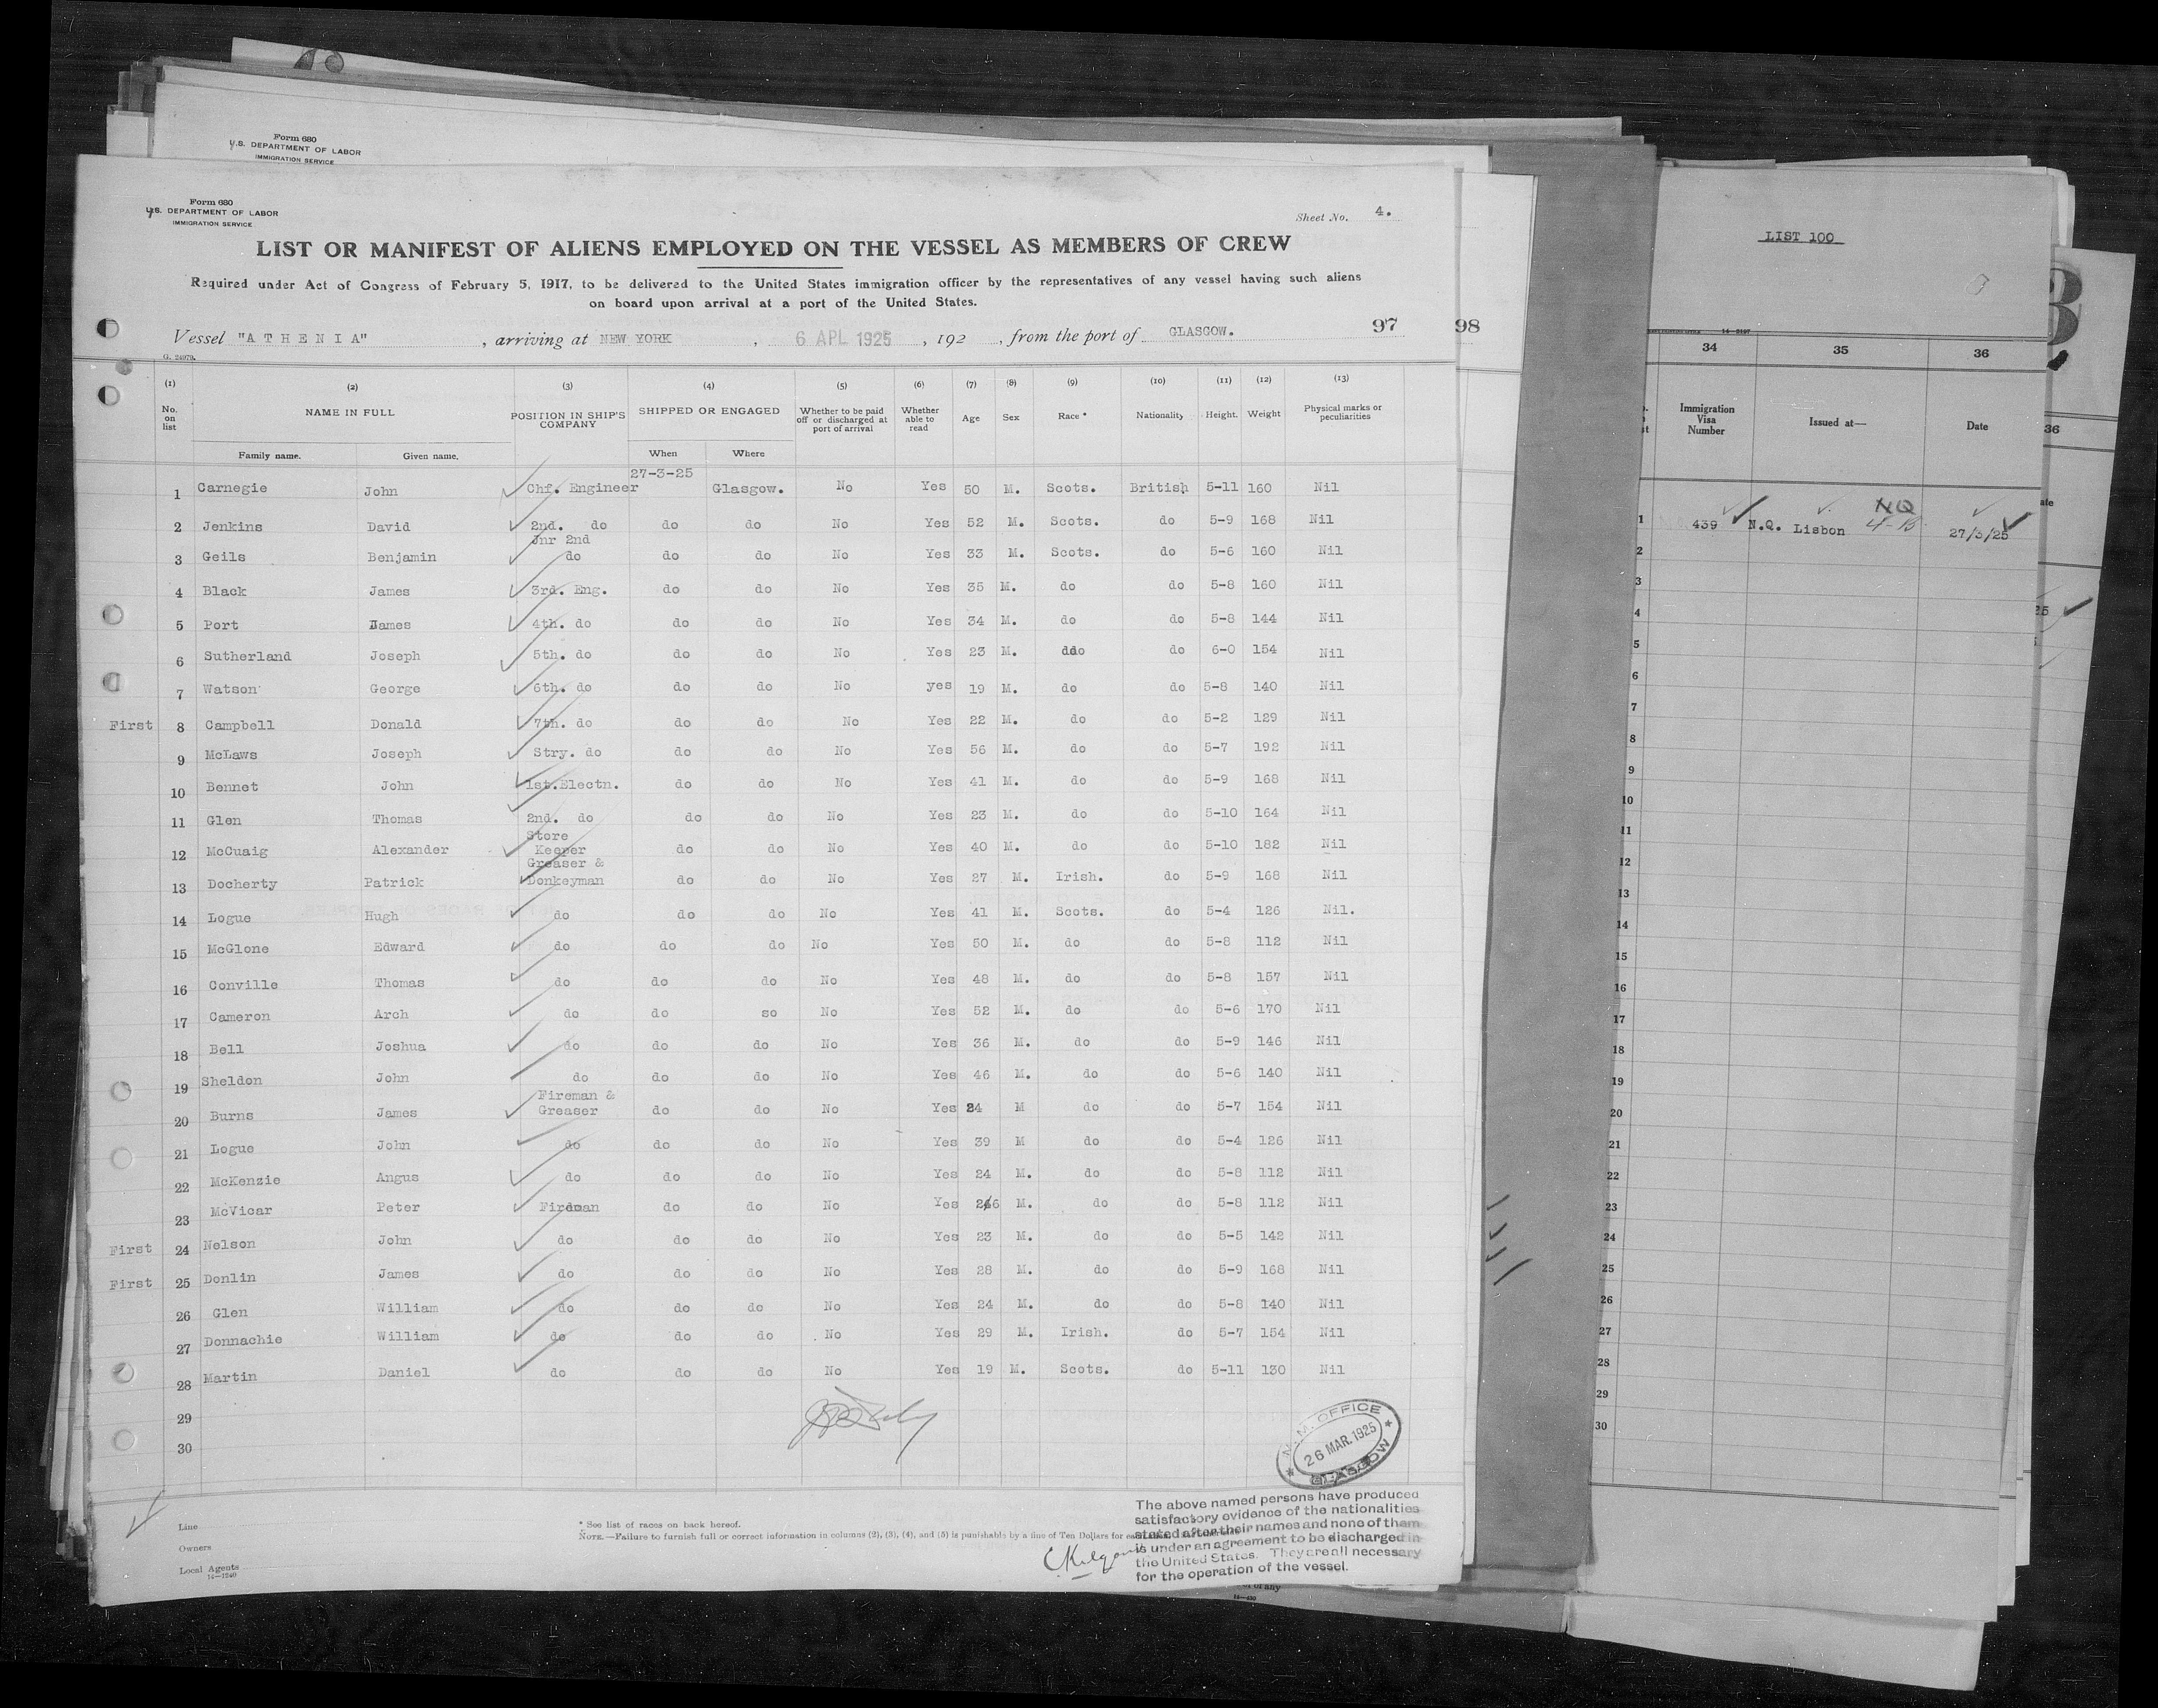 Form 680
U.S. DEPARTMENT OF LABOR
IMMIGRATION SERVICE
Form 680
U.S. DEPARTMENT OF LABOR
IMMIGRATION SERVICE
Sheet No. 4.
LIST OR MANIFEST OF ALIENS EMPLOYED ON THE VESSEL AS MEMBERS OF CREW
Required under Act of Congress of February 5, 1917, to be delivered to the United States immigration officer by the representatives of any vessel having such aliens
on board upon arrival at a port of the United States.
Vessel "A T H E N I A" , arriving at NEW YORK , 6 APL 1925 , 192 , from the port of GLASGOW. 97
G. 24979.
(1) (2) (3) (4) (5) (6) (7) (8) (9) (10) (11) (12) (13)
No. on list NAME IN FULL POSITION IN SHIP'S COMPANY SHIPPED OR ENGAGED Whether to be paid off or discharged at port of arrival Whether able to read Age Sex Race * Nationality Height. Weight Physical marks or peculiarities
Family name. Given name. When Where
27-3-25
1 Carnegie John Chf. Engineer Glasgow. No Yes 50 M. Scots. British 5-11 160 Nil
2 Jenkins David 2nd. do do do No Yes 52 M. Scots. do 5-9 168 Nil
Jnr 2nd
3 Geils Benjamin do do do No Yes 33 M. Scots. do 5-6 160 Nil
4 Black James 3rd. Eng. do do No Yes 35 M. do do 5-8 160 Nil
5 Port James 4th. do do do No Yes 34 M. do do 5-8 144 Nil
6 Sutherland Joseph 5th. do do do No Yes 23 M. ddo do 6-0 154 Nil
7 Watson George 6th. do do do No yes 19 M. do do 5-8 140 Nil
First 8 Campbell Donald 7th. do do do No Yes 22 M. do do 5-2 129 Nil
9 McLaws Joseph Stry. do do do No Yes 56 M. do do 5-7 192 Nil
10 Bennet John 1st.Electn. do do No Yes 41 M. do do 5-9 168 Nil
11 Glen Thomas 2nd. do do do No Yes 23 M. do do 5-10 164 Nil
Store
12 McCuaig Alexander Keeper do do No Yes 40 M. do do 5-10 182 Nil
Greaser &
13 Docherty Patrick Donkeyman do do No Yes 27 M. Irish. do 5-9 168 Nil
14 Logue Hugh do do do No Yes 41 M. Scots. do 5-4 126 Nil.
15 McGlone Edward do do do No Yes 50 M. do do 5-8 112 Nil
16 Conville Thomas do do do No Yes 48 M. do do 5-8 157 Nil
17 Cameron Arch do do so No Yes 52 M. do do 5-6 170 Nil
18 Bell Joshua do do do No Yes 36 M. do do 5-9 146 Nil
19 Sheldon John do do do No Yes 46 M. do do 5-6 140 Nil
Fireman &
20 Burns James Greaser do do No Yes 24 M do do 5-7 154 Nil
21 Logue John do do do No Yes 39 M do do 5-4 126 Nil
22 McKenzie Angus do do do No Yes 24 M. do do 5-8 112 Nil
23 McVicar Peter Fireman do do No Yes 26 M. do do 5-8 112 Nil
First 24 Nelson John do do do No Yes 23 M. do do 5-5 142 Nil
First 25 Donlin James do do do No Yes 28 M. do do 5-9 168 Nil
26 Glen William do do do No Yes 24 M. do do 5-8 140 Nil
27 Donnachie William do do do No Yes 29 M. Irish. do 5-7 154 Nil
28 Martin Daniel do do do No Yes 19 M. Scots. do 5-11 130 Nil
29
30
M. M. OFFICE
26 MAR. 1925
GLASGOW
Line
Owners
Local Agents
14—1240
* See list of races on back hereof.
NOTE.—Failure to furnish full or correct information in columns (2), (3), (4), and (5) is punishable by a fine of Ten Dollars for
The above named persons have produced
satisfactory evidence of the nationalities
stated after their names and none of them
is under an agreement to be discharged in
the United States. They are all necessary
for the operation of the vessel.
of any
98
LIST 100
34 35 36
Immigration Visa Number Issued at— Date
1 439 N.Q. Lisbon NQ 27/3/25
2
3
4
5
6
7
8
9
10
11
12
13
14
15
16
17
18
19
20
21
22
23
24
25
26
27
28
29
30
36